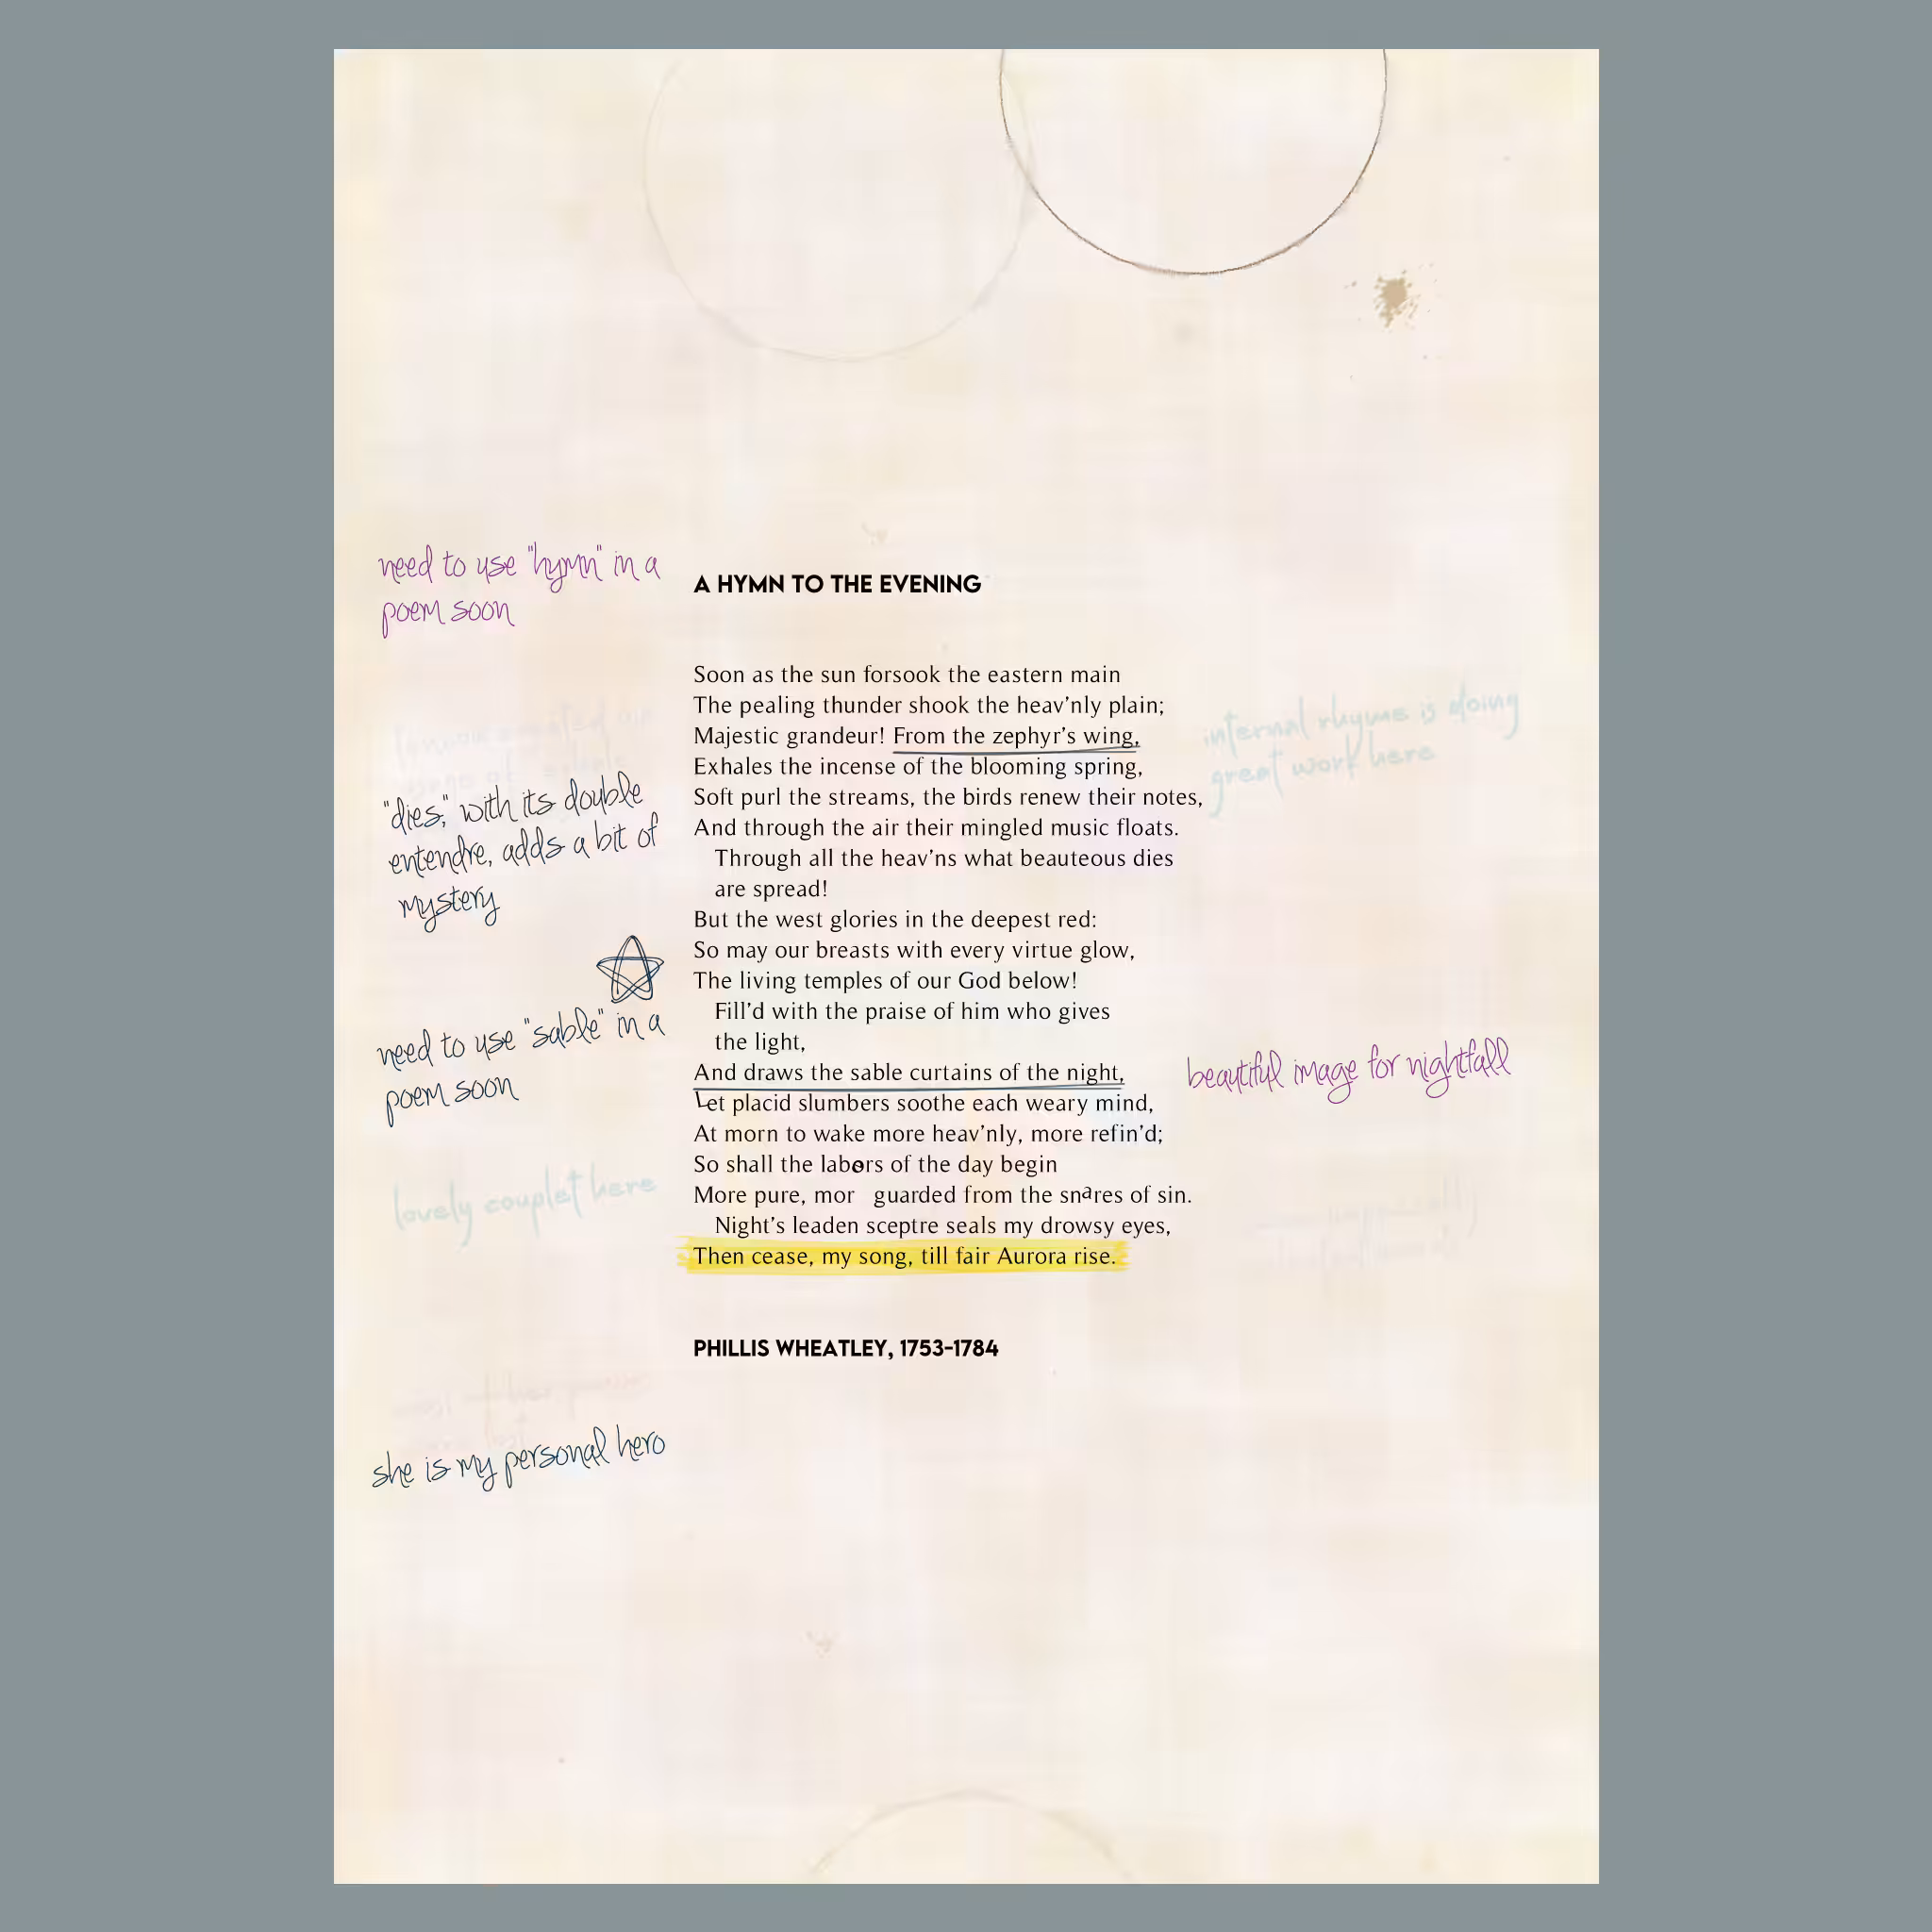 need to use "hymn" in a
poem soon
A HYMN TO THE EVENING
Soon as the sun forsook the eastern main
The pealing thunder shook the heav'nly plain;
Majestic grandeur! From the zephyr's wing,
Exhales the incense of the blooming spring,
Soft purl the streams, the birds renew their notes,
And through the air their mingled music floats.
Through all the heav'ns what beauteous dies
are spread!
But the west glories in the deepest red:
So may our breasts with every virtue glow,
The living temples of our God below!
Fill'd with the praise of him who gives
the light,
And draws the sable curtains of the night,
Let placid slumbers soothe each weary mind,
At morn to wake more heav'nly, more refin'd;
So shall the labors of the day begin
More pure, mor guarded from the snares of sin.
Night's leaden sceptre seals my drowsy eyes,
Then cease, my song, till fair Aurora rise.
PHILLIS WHEATLEY, 1753-1784
internal rhyme is doing
great work here
"dies," with its double
entendre, adds a bit of
mystery
need to use "sable" in a
poem soon
beautiful image for nightfall
lovely couplet here
she is my personal hero